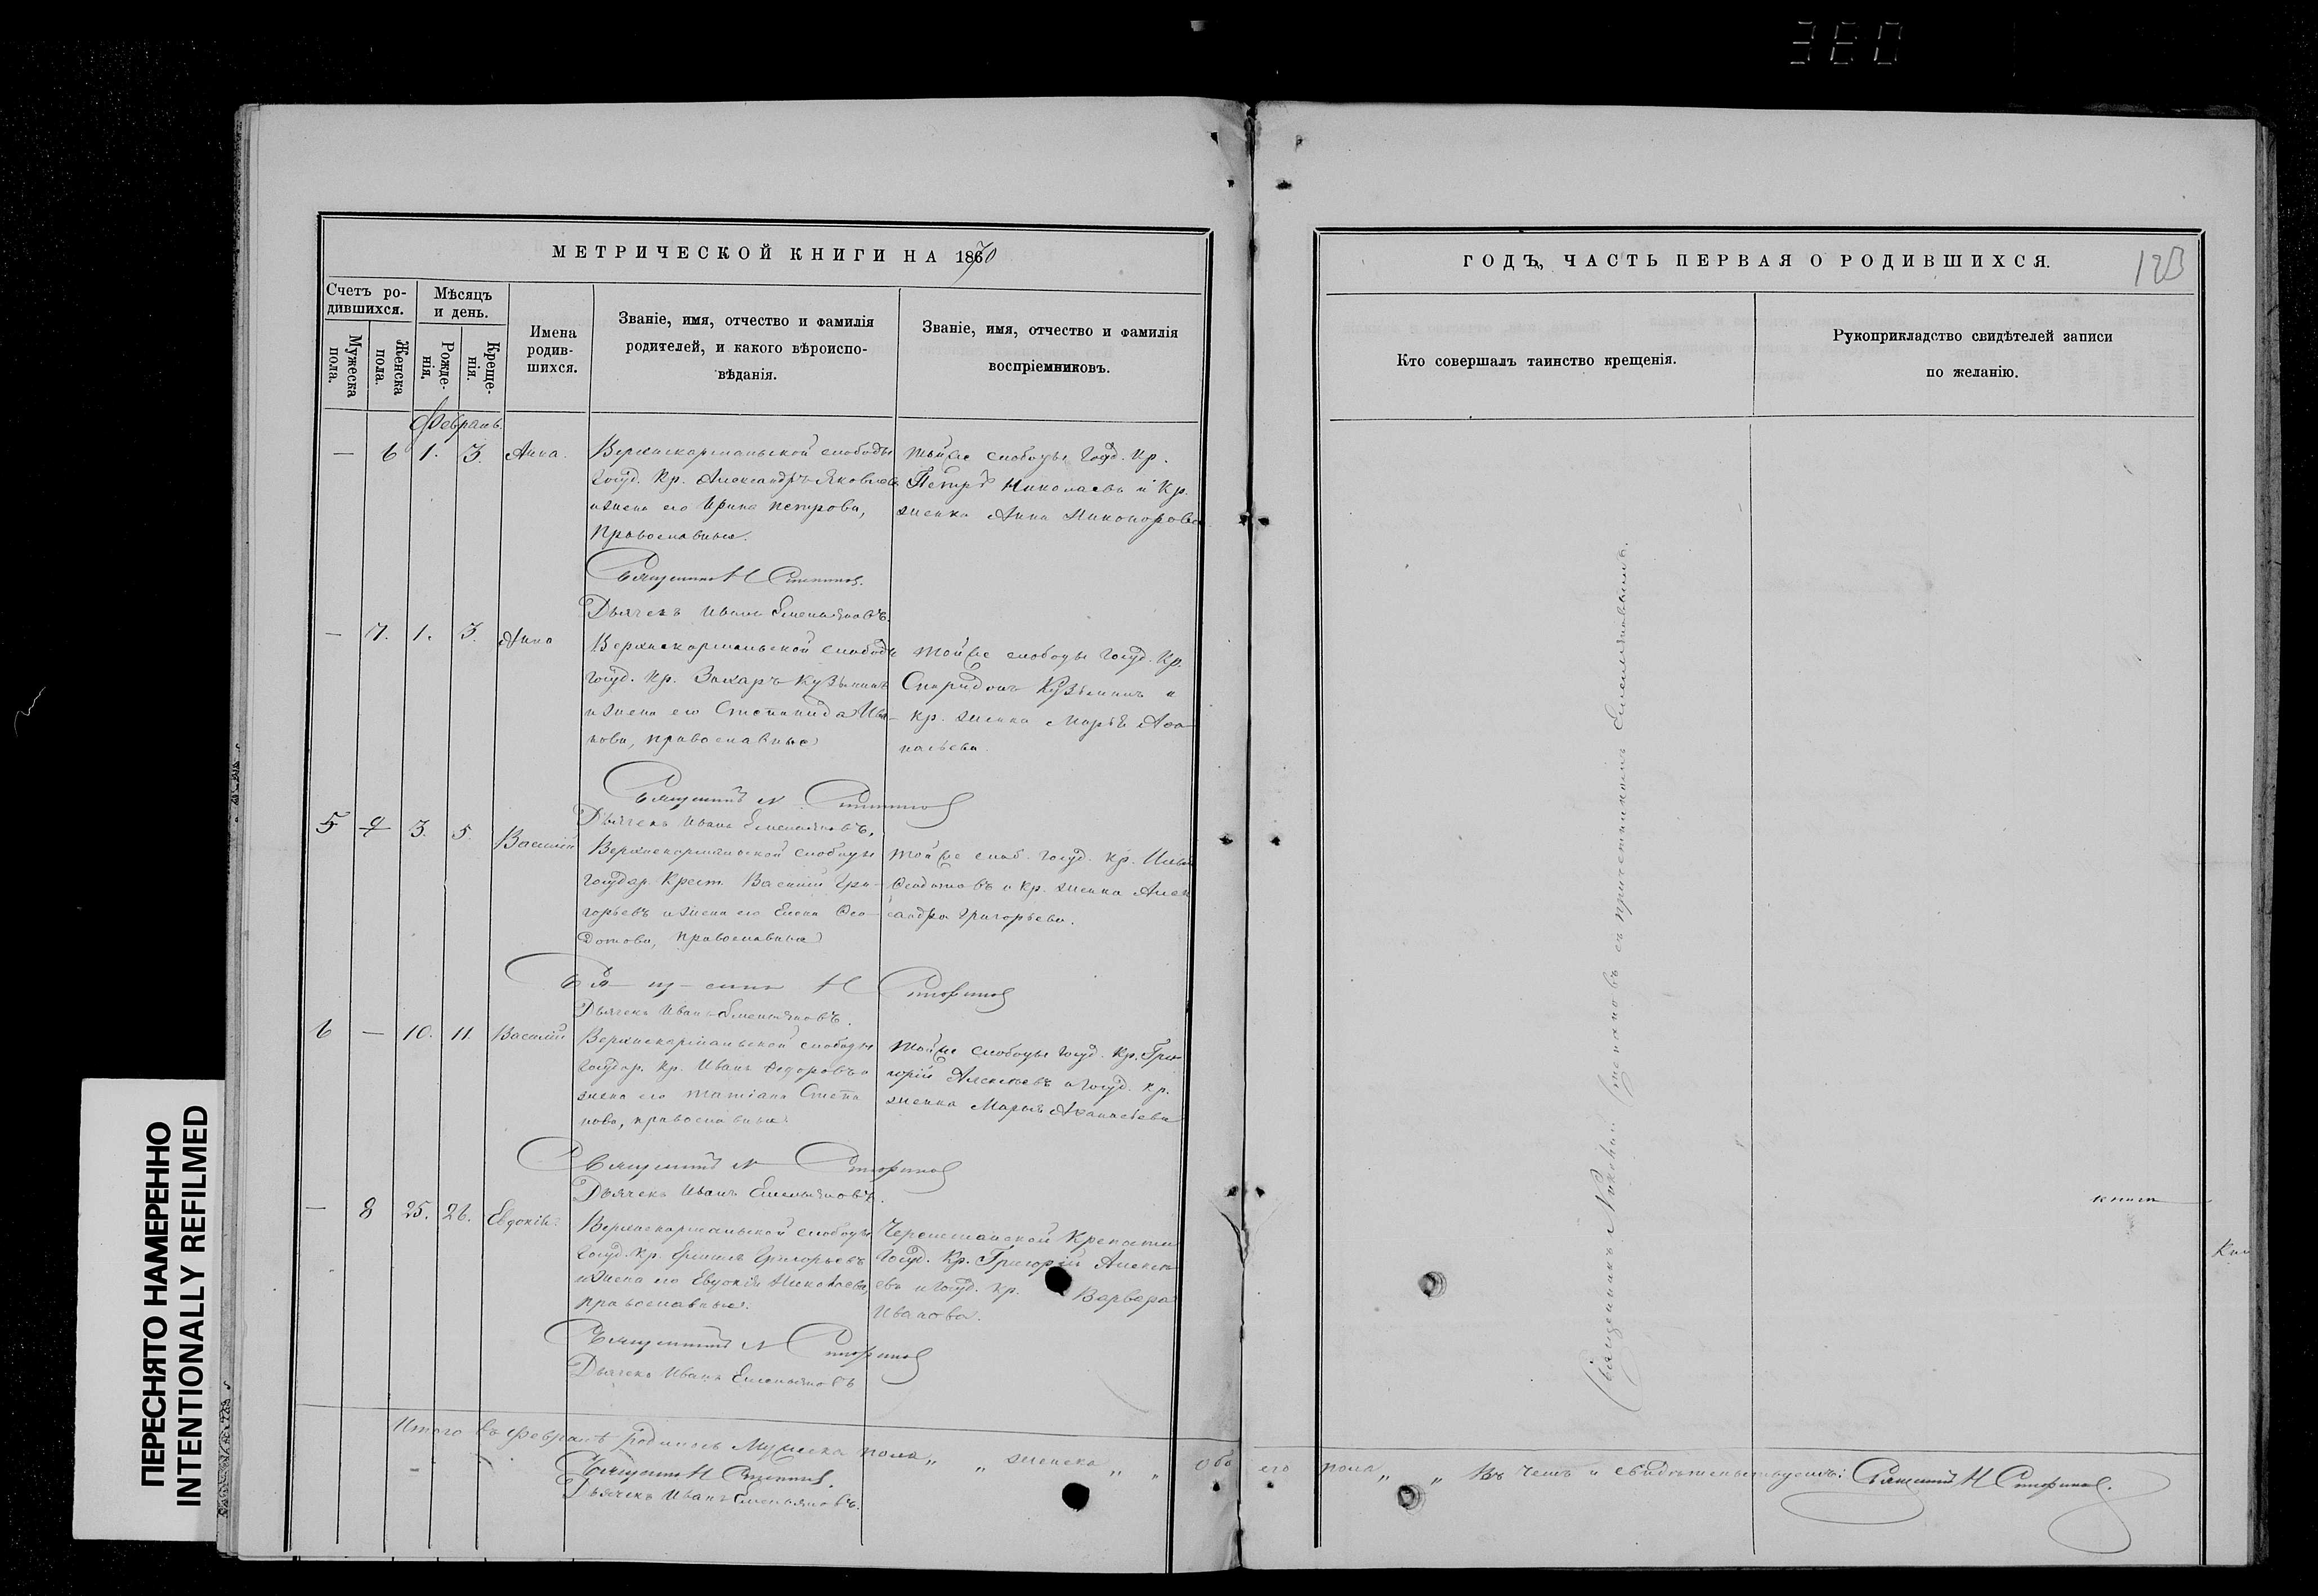 380
МЕТРИЧЕСКОЙ КНИГИ НА 1870
ГОДЪ, ЧАСТЬ ПЕРВАЯ О РОДИВШИХСЯ.
123
Счетъ ро-
дившихся.
Мужеска
пола.
Женска
пола.
Мѣсяцъ
и день.
Рожде-
нія.
Креще-
нія.
Имена
родив-
шихся.
Званіе, имя, отчество и фамилія
родителей, и какого вѣроиспо-
вѣданія.
Званіе, имя, отчество и фамилія
воспріемниковъ.
Кто совершалъ таинство крещенія.
Рукоприкладство свидѣтелей записи
по желанію.
Февраль
— 6 1. 3. Анна.
слободы
Госуд. Кр. Александръ Яковлевъ
и жена его Ирина Петрова,
Православные.
Тойже слободы Госуд. Кр.
Петръ Николаевъ и Кр.
женка Анна Никонорова
Священникъ Н
Дьячекъ Иванъ Емельяновъ.
— 7. 1. 3. Анна
слободы
Госуд. Кр. Захаръ Кузьминъ
и жена его Степанида Ива-
нова, православные
Тойже слободы Госуд. Кр.
Спиридонъ Кузьминъ и
кр. женка Марья Афа
насьева.
Священникъ Н
Дьячекъ Иванъ Емельяновъ.
5 3. 5. Василій
слободы
Государ. Крест. Василій Гри-
горьевъ и жена его Елена Фео-
дотова, православные
Тойже слоб. Госуд. Кр. Илья
Феодотовъ и Кр. женка Алек
сандра Григорьева.
Н
Дьячекъ Иванъ Емельяновъ.
6 — 10. 11. Василій
слободы
Государ. Кр. Иванъ Федоровъ и
жена его Татіана Степа
нова, православные
Тойже слободы Госуд. Кр. Гри
горій Алексѣевъ и Госуд. Кр.
женка Марья Афанасьева
Священникъ Н
Дьячекъ Иванъ Емельяновъ.
— 8 25. 26. Евдокія.
слободы
Госуд. Кр. Григорьевъ
и жена его Евдокія Николаева,
православные.
Черемшанской Крепости
Госуд. Кр. Григорій Алексѣ
евъ и Госуд. Кр. Варвара
Иванова.
Священникъ Н
Дьячекъ Иванъ Емельяновъ
Итого въ Февралѣ родилось Мужеска пола „ „ женска „ „ обо его пола „ „ Въ чемъ и свидѣтельствуемъ: Священникъ Н
Священникъ Н
Дьячекъ Иванъ Емельяновъ.
Священникъ Николай съ причетникомъ Емельяновымъ.
ПЕРЕСНЯТО НАМЕРЕННО
INTENTIONALLY REFILMED